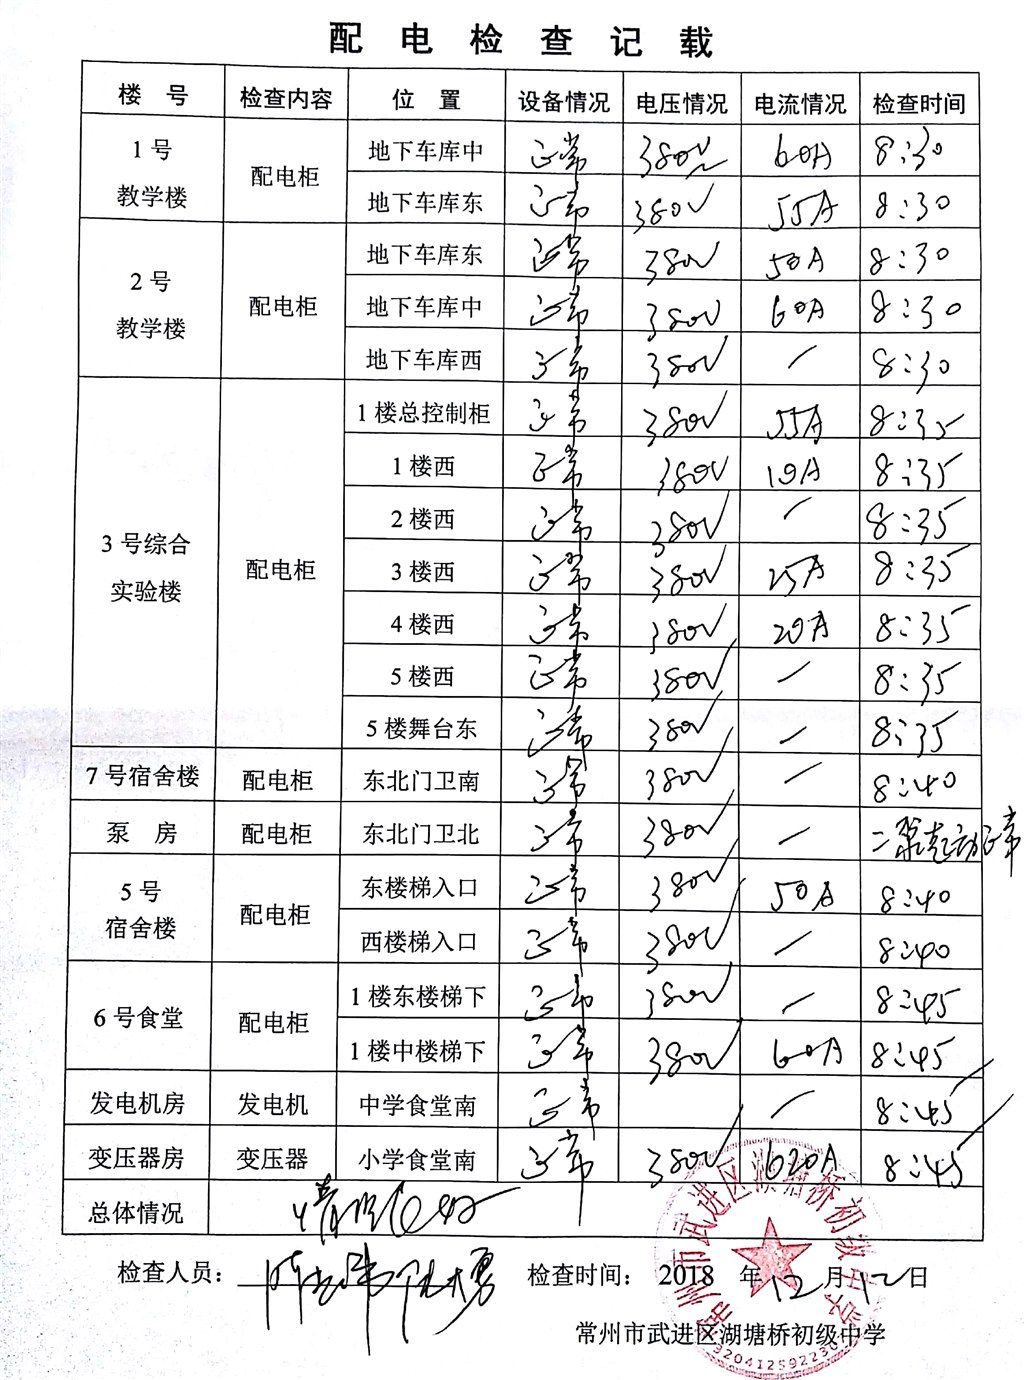 配 电 检 查 记 载
楼 号 检查内容 位 置 设备情况 电压情况 电流情况 检查时间
1号 教学楼 配电柜 地下车库中 正常 380V 60A 8:30
地下车库东 正常 380V 55A 8:30
2号 教学楼 配电柜 地下车库东 正常 380V 50A 8:30
地下车库中 正常 380V 60A 8:30
地下车库西 正常 380V / 8:30
3号综合 实验楼 配电柜 1楼总控制柜 正常 380V 55A 8:35
1楼西 正常 380V 10A 8:35
2楼西 正常 380V / 8:35
3楼西 正常 380V 25A 8:35
4楼西 正常 380V 20A 8:35
5楼西 正常 380V / 8:35
5楼舞台东 正常 380V / 8:35
7号宿舍楼 配电柜 东北门卫南 正常 380V / 8:40
泵 房 配电柜 东北门卫北 正常 380V / 二泵起动正常
5号 宿舍楼 配电柜 东楼梯入口 正常 380V 50A 8:40
西楼梯入口 正常 380V / 8:40
6号食堂 配电柜 1楼东楼梯下 正常 380V / 8:45
1楼中楼梯下 正常 380V 60A 8:45
发电机房 发电机 中学食堂南 正常 / 8:45
变压器房 变压器 小学食堂南 正常 380V 620A 8:45
总体情况 情况良好
检查人员： 检查时间： 2018 年 12 月 12 日
常州市武进区湖塘桥初级中学
常州市武进区湖塘桥初级中学